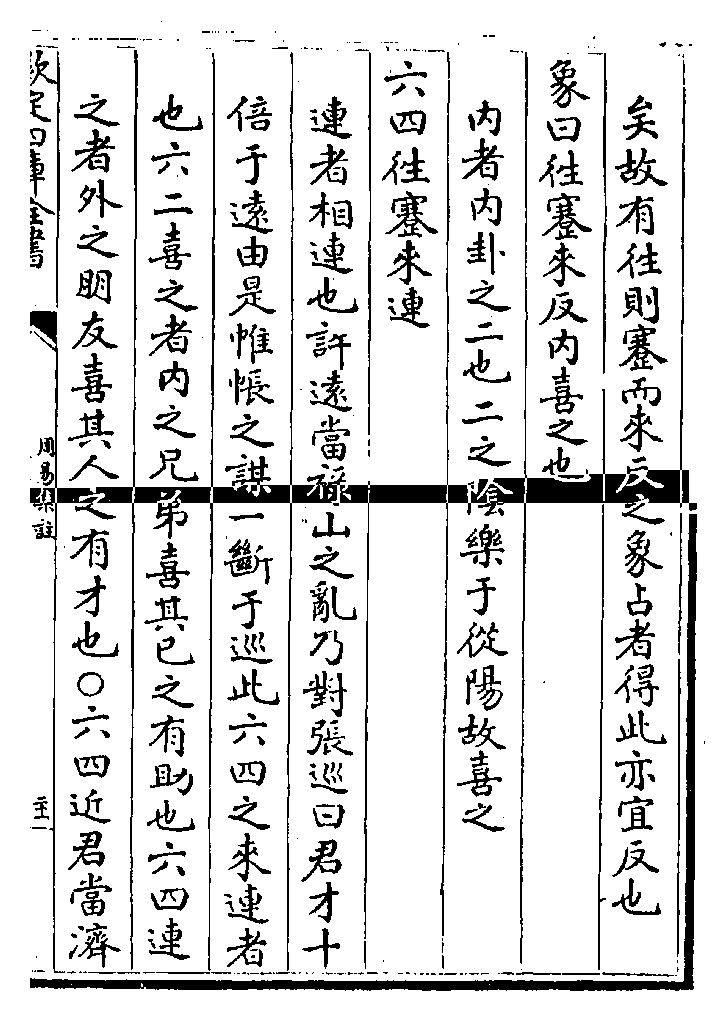 矣故有往則蹇而來反之象占者得此亦宜反也
象曰往蹇來反内喜之也
内者内卦之二也二之陰樂于從陽故喜之
六四往蹇來連
連者相連也許遠當祿山之亂乃對張巡曰君才十
倍于遠由是帷帳之謀一斷于巡此六四之來連者
也六二喜之者内之兄弟喜其已之有助也六四連
之者外之朋友喜其人之有才也○六四近君當濟
欽定四庫全書
周易集註